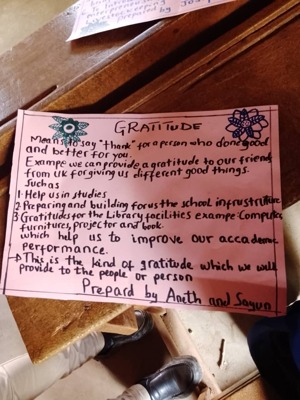 GRATITUDE
Means to say "thank" for a person who done good
and better for you.
Exampe we can provide a gratitude to our friends
from UK for giving us different good things.
Such as
1 Help us in studies
2 Preparing and building for us the school infrustructure
3 Gratitudes for the Library facilities exampe Computer,
furnitures, projector and book.
which help us to improve our accademic
performance.
→ This is the kind of gratitude which we well
provide to the people or person
Prepard by Aneth and Sayun